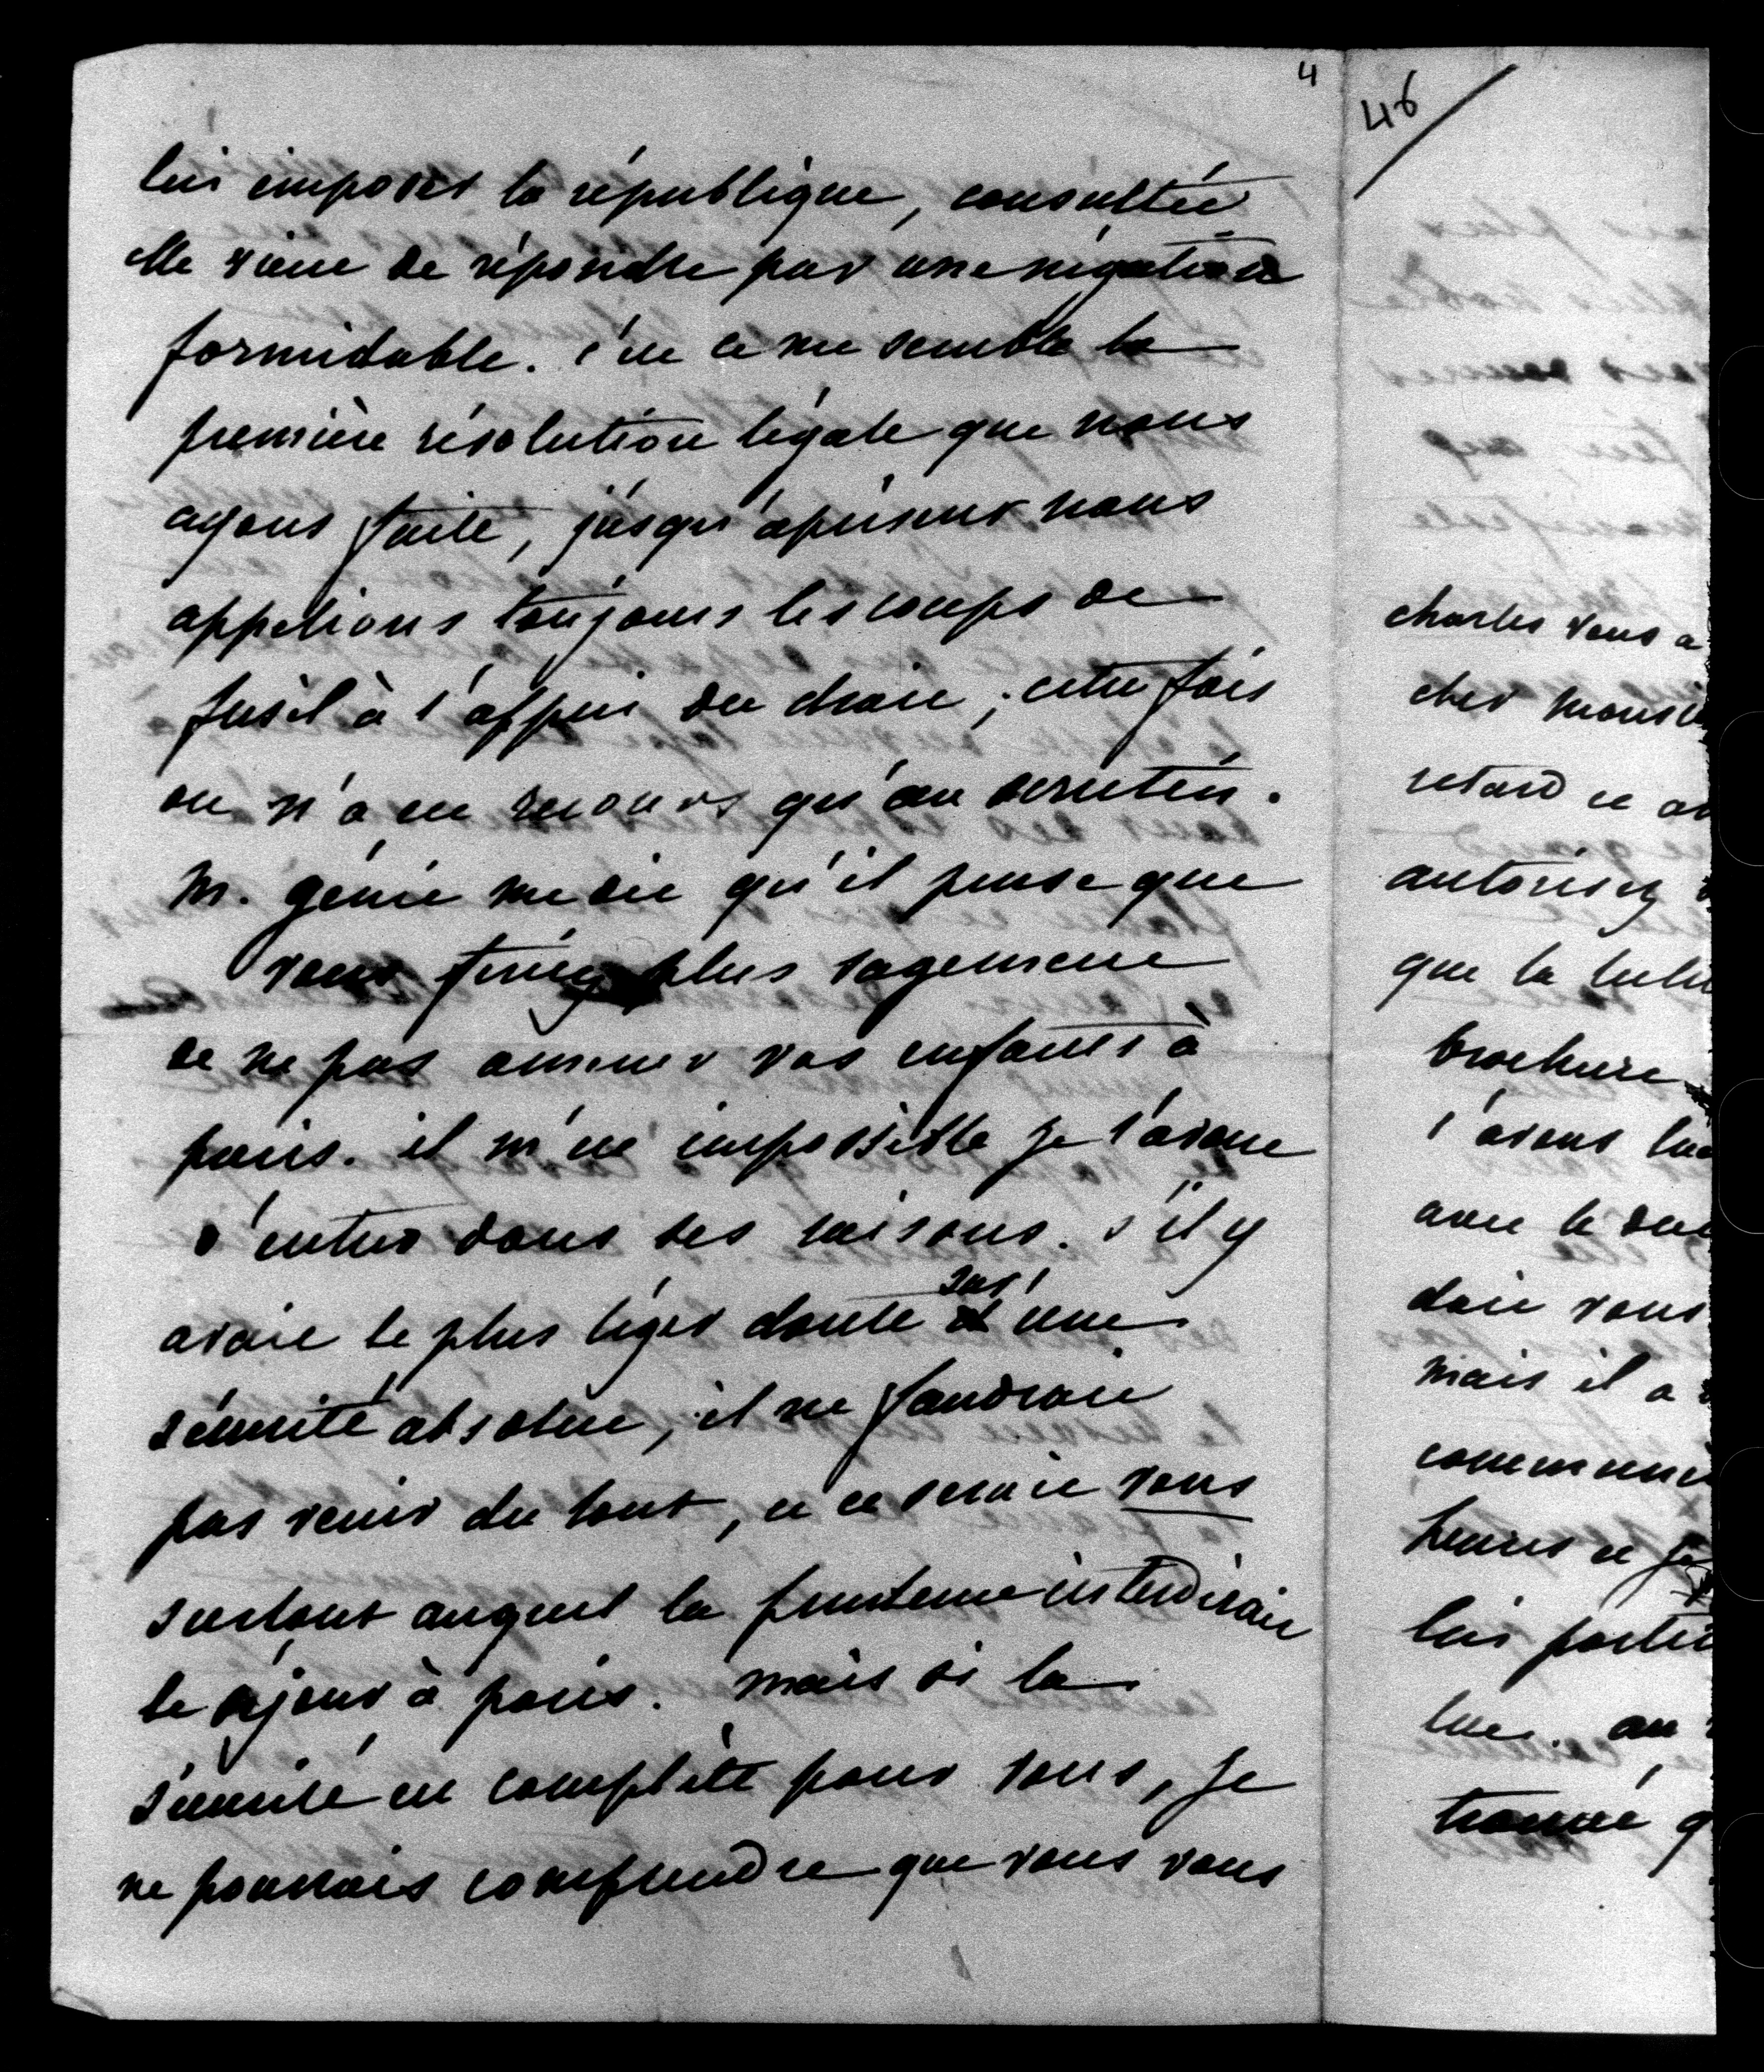 4
lui imposer la république, consultée
elle vient de répondre par une négation
formidable. c'est ce me semble la
première résolution légale que nous
ayons faite, jusqu'à présent nous
appelions toujours les coups de
fusil à l'appui du droit ; cette fois
on n'a eu recours qu'au scrutin.
M. génie me dit qu'il pense que
vous feriez plus sagement
de ne pas amener vos enfants à
paris. il m'est impossible je l'avoue
d'entrer dans ses raisons. s'il y
avait le plus léger doute sur l'une
sécurité absolue, il ne faudrait
pas venir du tout, et ce serait vous
surtout auquel la prudence interdirait
le séjour à paris. mais si la
sécurité est complète pour vous, je
ne pourrais comprendre que vous vous
46
charles vous a
cher monsi
retard et au
autorisez
que la lectu
brochure
l'avons lue
avec le duc
dois vous
mais il a
communi
heures et je
lui porter
lue. au
trouvé q